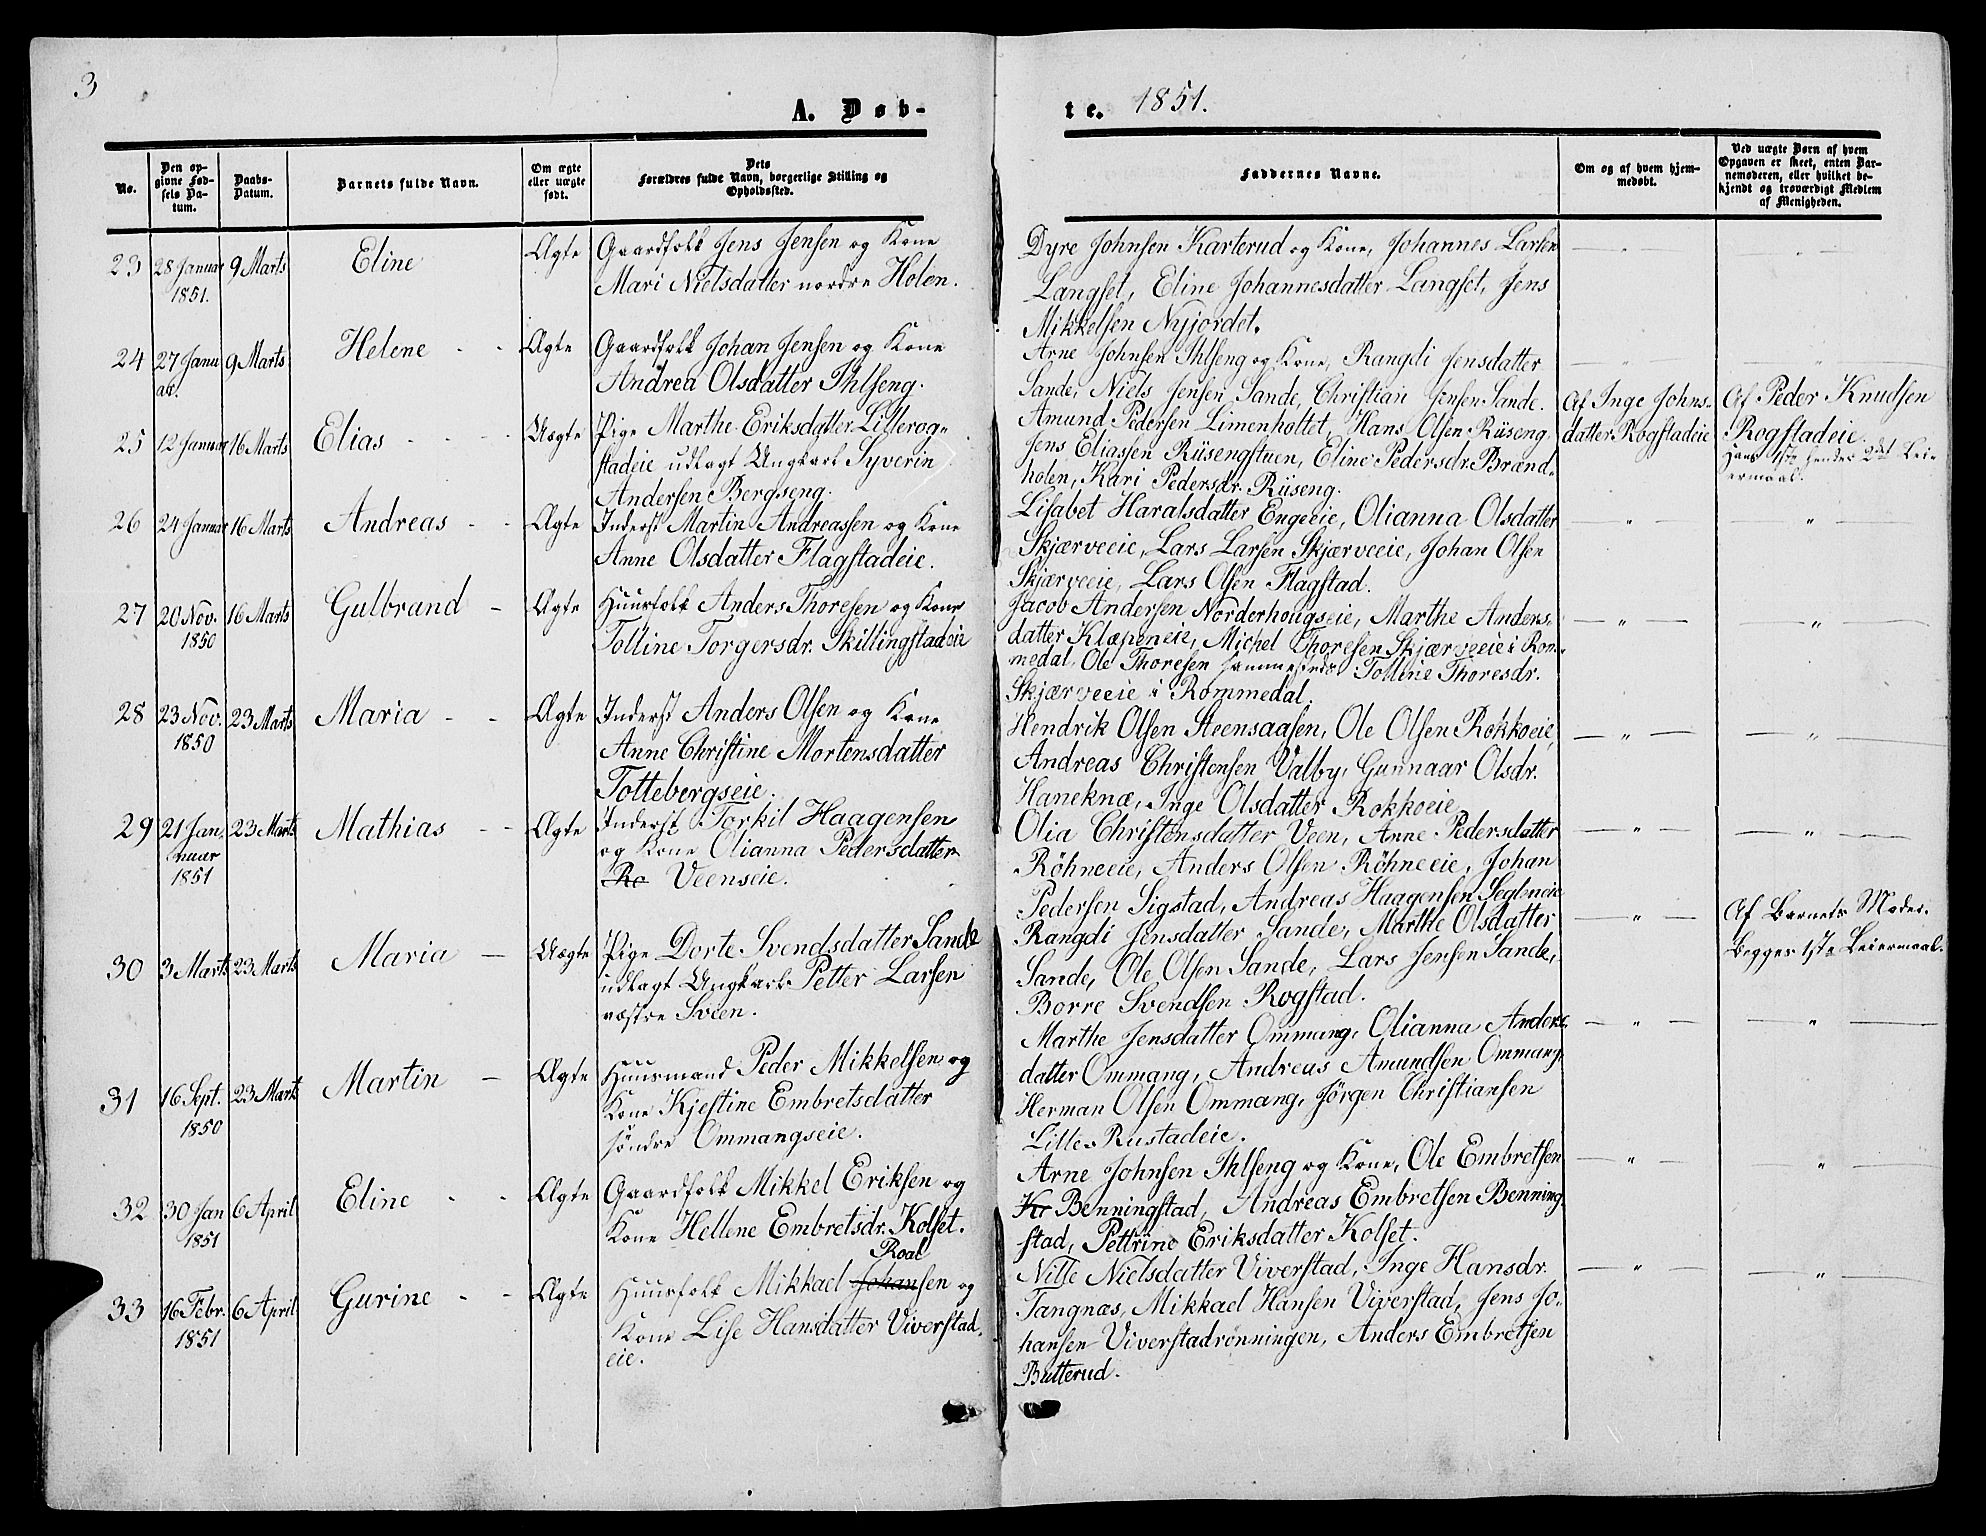 3
A. Døb-
te. 1851.
No.
Den op-
givne Fød-
sels Da-
tum.
Daabs-
Datum.
Barnets fulde Navn.
Om ægte
eller uægte
født.
Dets
Forældres fulde Navn, borgerlige Stilling og
Opholdssted.
Faddernes Navne.
Om og af hvem hjem-
medøbt.
Ved uægte Børn af hvem
Opgaven er skeet, enten Bar-
nemoderen, eller hvilket be-
kjendt og troværdigt Medlem
af Menigheden.
23 28 Januar 9 Marts Eline Ægte Gaardfolk Jens Jensen og Kone
1851. Mari Nielsdatter nordre Holen.
Dyre Johnsen Karterud og Kone, Johannes Larsen
Langset, Eline Johannesdatter Langset, Jens
Mikkelsen Nyjordet.
24 27 Janu 9 Marts Helene Ægte Gaardfolk Johan Jensen og Kone
ar. Andrea Olsdatter Ihlseng.
Arne Johnsen Ihlseng og Kone, Rangdi Jensdatter
Sande, Niels Jensen Sande, Christian Jensen Sande.
25 12 Januar 16 Marts Elias Uægte Pige Marthe Eriksdatter Lillerog-
stadeie udlagt Ungkarl Syverin
Andersen Bergseng.
Amund Pedersen Limenholtet, Hans Olsen Rüseng
Jens Eliassen Rüsengstuen, Eline Pedersdr. Brænd-
holen, Kari Pedersdr. Rüseng.
Af Inge Johns-
datter Rogstadeie
Af Peder Knudsen
Rogstadeie.
Hans 1ste hendes 2det Lei-
ermaal.
26 24 Januar 16 Marts Andreas Ægte Inderst Martin Andreassen og Kone
Anne Olsdatter Flagstadeie.
Lisabet Haralsdatter Engeeie, Olianna Olsdatter
Skjærveeie, Lars Larsen Skjærveeie, Johan Olsen
Skjærveeie, Lars Olsen Flagstad.
27 20 Nov. 16 Marts Gulbrand Ægte Huusfolk Anders Thoresen og Kone
1850 Tolline Torgersdr. Skillingstadeie
Jacob Andersen Norderhougseie, Marthe Anders-
datter Klæpeneie, Michel Thoresen Skjærveeie i Rom-
medal, Ole Thoresen sammesteds Tolline Thoresdr.
Skjærveeie i Rommedal.
28 23 Nov. 23 Marts Maria Ægte Inderst Anders Olsen og Kone
1850 Anne Christine Mortensdatter
Tottebergseie.
Hendrik Olsen Steensaasen, Ole Olsen Rokkoeie,
Andreas Christensen Valby, Gunnaar Olsdr.
Haneknæ, Inge Olsdatter Rokkoeie
29 21 Jan. 23 Marts Mathias Ægte Inderst Torkil Haagensen
nuar og Kone Olianna Pedersdatter
1851 Ro Veenseie.
Olia Christensdatter Veen, Anne Pedersdatter
Röhneeie, Anders Olsen Röhneeie, Johan
Pedersen Sigstad, Andreas Haagensen
30 3 Marts 23 Marts Maria Uægte Pige Dorte Svendsdatter Sande
udlagt Ungkarl Petter Larsen
vestre Sveen.
Rangdi Jensdatter Sande, Marthe Olsdatter
Sande, Ole Olsen Sande, Lars Jensen Sande,
Borre Svendsen Rogstad.
Af Barnets Moder.
Begges 1ste Leiermaal.
31 16 Sept. 23 Marts Martin Ægte Huusmand Peder Mikkelsen og
1850 Kone Kjestine Embretsdatter
söndre Ommangseie.
Marthe Jensdatter Ommang, Olianna Anders
datter Ommang, Andreas Amundsen Ommang
Herman Olsen Ommang, Jörgen Christiansen
Lille Rustadeie.
32 30 Jan 6 April Eline Ægte Gaardfolk Mikkel Eriksen og
1851 Kone Hellene Embretsdr. Kolset.
Arne Johnsen Ihlseng og Kone, Ole Embretsen
Ko Benningstad, Andreas Embretsen Benning
stad, Pettrine Eriksdatter Kolset.
Roal
33 16 Febr. 6 April Gurine Ægte Huusfolk Mikkael Johansen og
1851 Kone Lise Hansdatter Viverstad
eie.
Nille Nielsdatter Viverstad, Inge Hansdr.
Tangnæs, Mikkael Hansen Viverstad, Jens Jo-
hansen Viverstadrönningen, Anders Embretsen
Butterud.